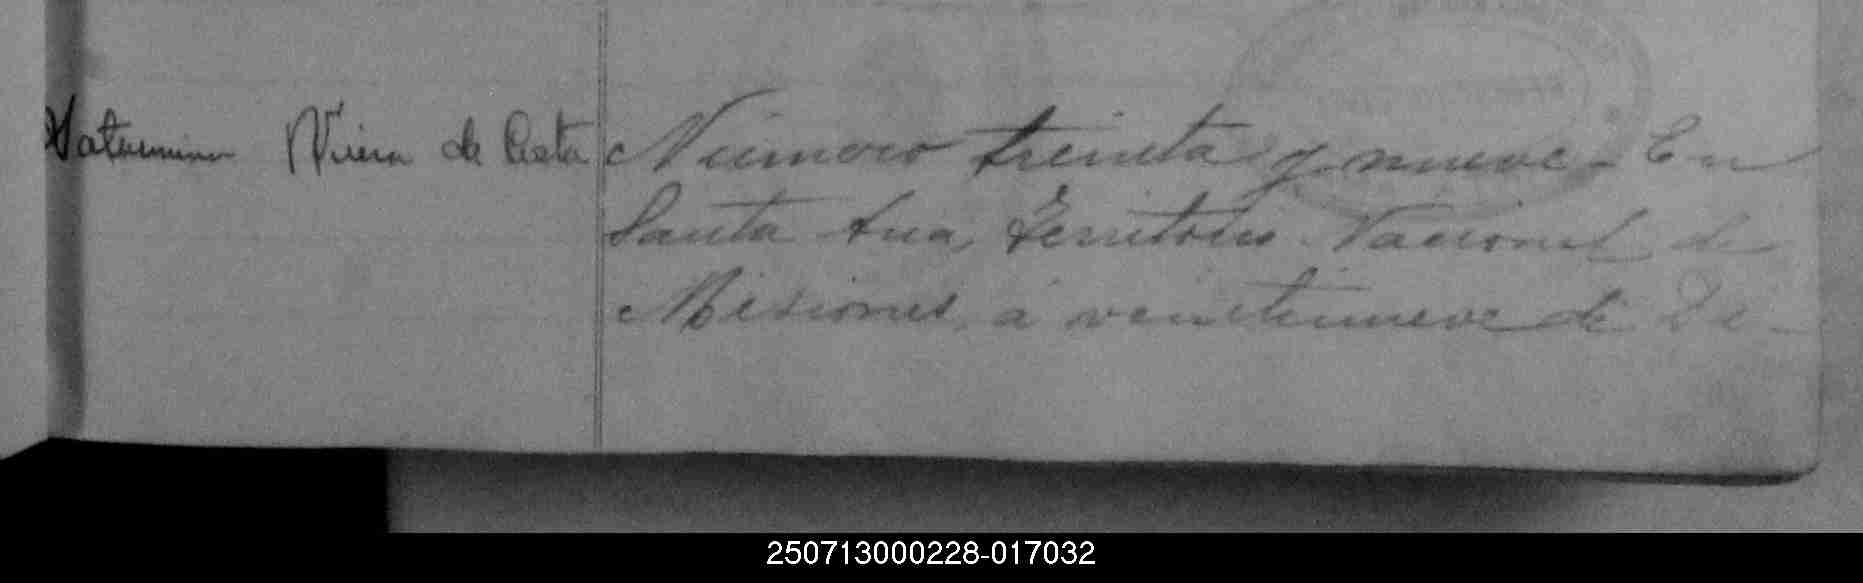 Saturnino Viera de Costa
Número treinta y nueve. En
Santa Ana, Territorio Nacional de
Misiones, á veintinueve de Di-
250713000228-017032